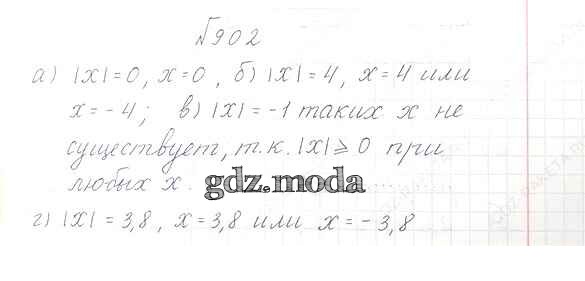 №902
а) |x|=0, x=0, б) |x|=4, x=4 или
x=-4; в) |x|=-1 таких x не
существует, т.к. |x|⩾0 при
любых x.
gdz.moda
г) |x|=3,8, x=3,8 или x=-3,8